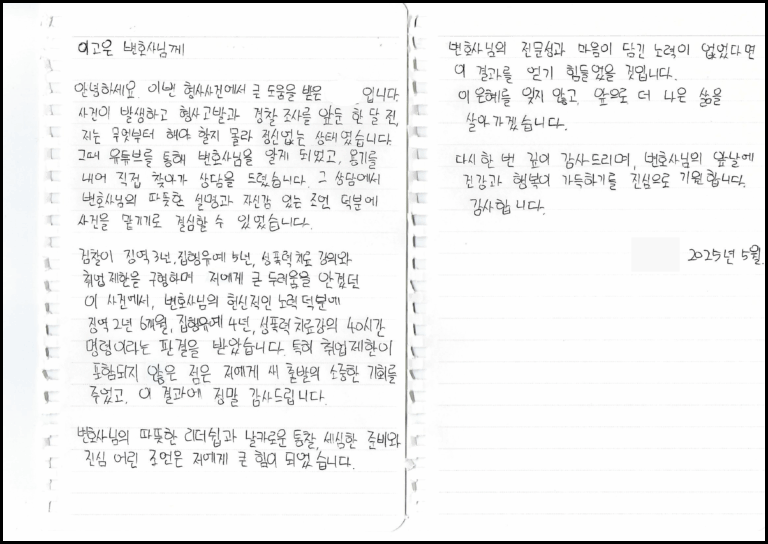 이고은 변호사님께
안녕하세요 이번 형사사건에서 큰 도움을 받은 입니다.
사건이 발생하고 형사고발과 경찰 조사를 앞둔 한 달 전,
저는 무엇부터 해야 할지 몰라 정신없는 상태였습니다.
그때 유튜브를 통해 변호사님을 알게 되었고, 용기를
내어 직접 찾아가 상담을 드렸습니다. 그 상담에서
변호사님의 따뜻한 설명과 자신감 있는 조언 덕분에
사건을 맡기기로 결심할 수 있었습니다.
검찰이 징역 3년, 집행유예 5년, 성폭력 치료 강의와
취업제한을 구형하며 저에게 큰 두려움을 안겼던
이 사건에서, 변호사님의 헌신적인 노력 덕분에
징역 2년 6개월, 집행유예 4년, 성폭력 치료강의 40시간
명령이라는 판결을 받았습니다. 특히 취업제한이
포함되지 않은 점은 저에게 새 출발의 소중한 기회를
주었고, 이 결과에 정말 감사드립니다.
변호사님의 따뜻한 리더쉽과 날카로운 통찰, 세심한 준비와
진심 어린 조언은 저에게 큰 힘이 되었습니다.
변호사님의 전문성과 마음이 담긴 노력이 없었다면
이 결과를 얻기 힘들었을 것입니다.
이 은혜를 잊지 않고, 앞으로 더 나은 삶을
살아가겠습니다.
다시 한 번 깊이 감사드리며, 변호사님의 앞날에
건강과 행복이 가득하기를 진심으로 기원합니다.
감사합니다.
2025년 5월